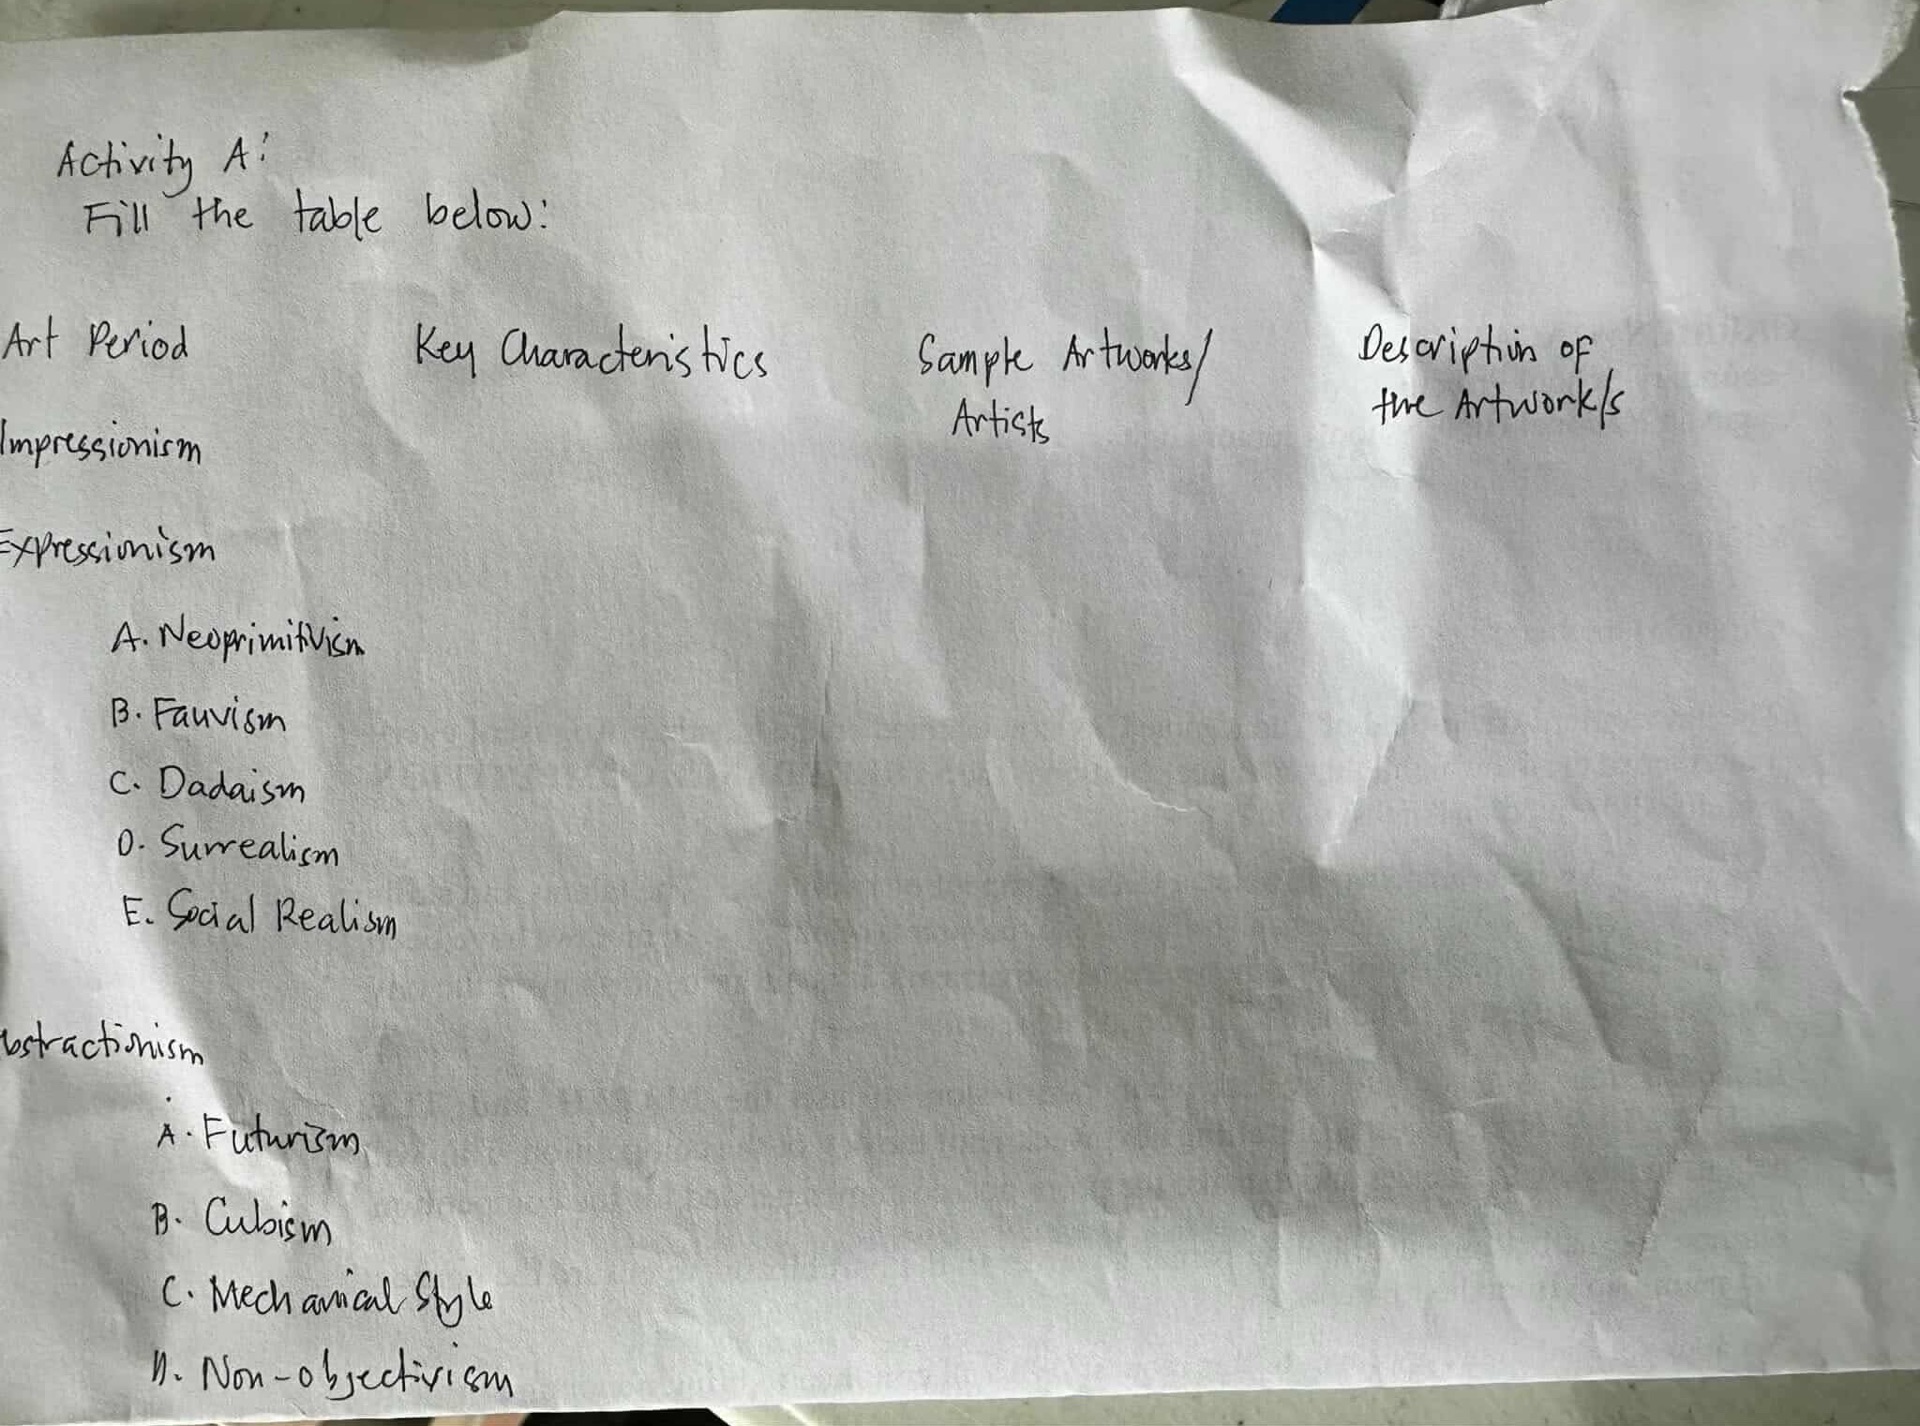 Activity A:
Fill the table below:
Art Period Key Characteristics Sample Artworks/ Description of
Artists the Artwork/s
Impressionism
Expressionism
A. Neoprimitivism
B. Fauvism
C. Dadaism
D. Surrealism
E. Social Realism
bstractionism
A. Futurism
B. Cubism
C. Mechanical Style
D. Non-objectivism